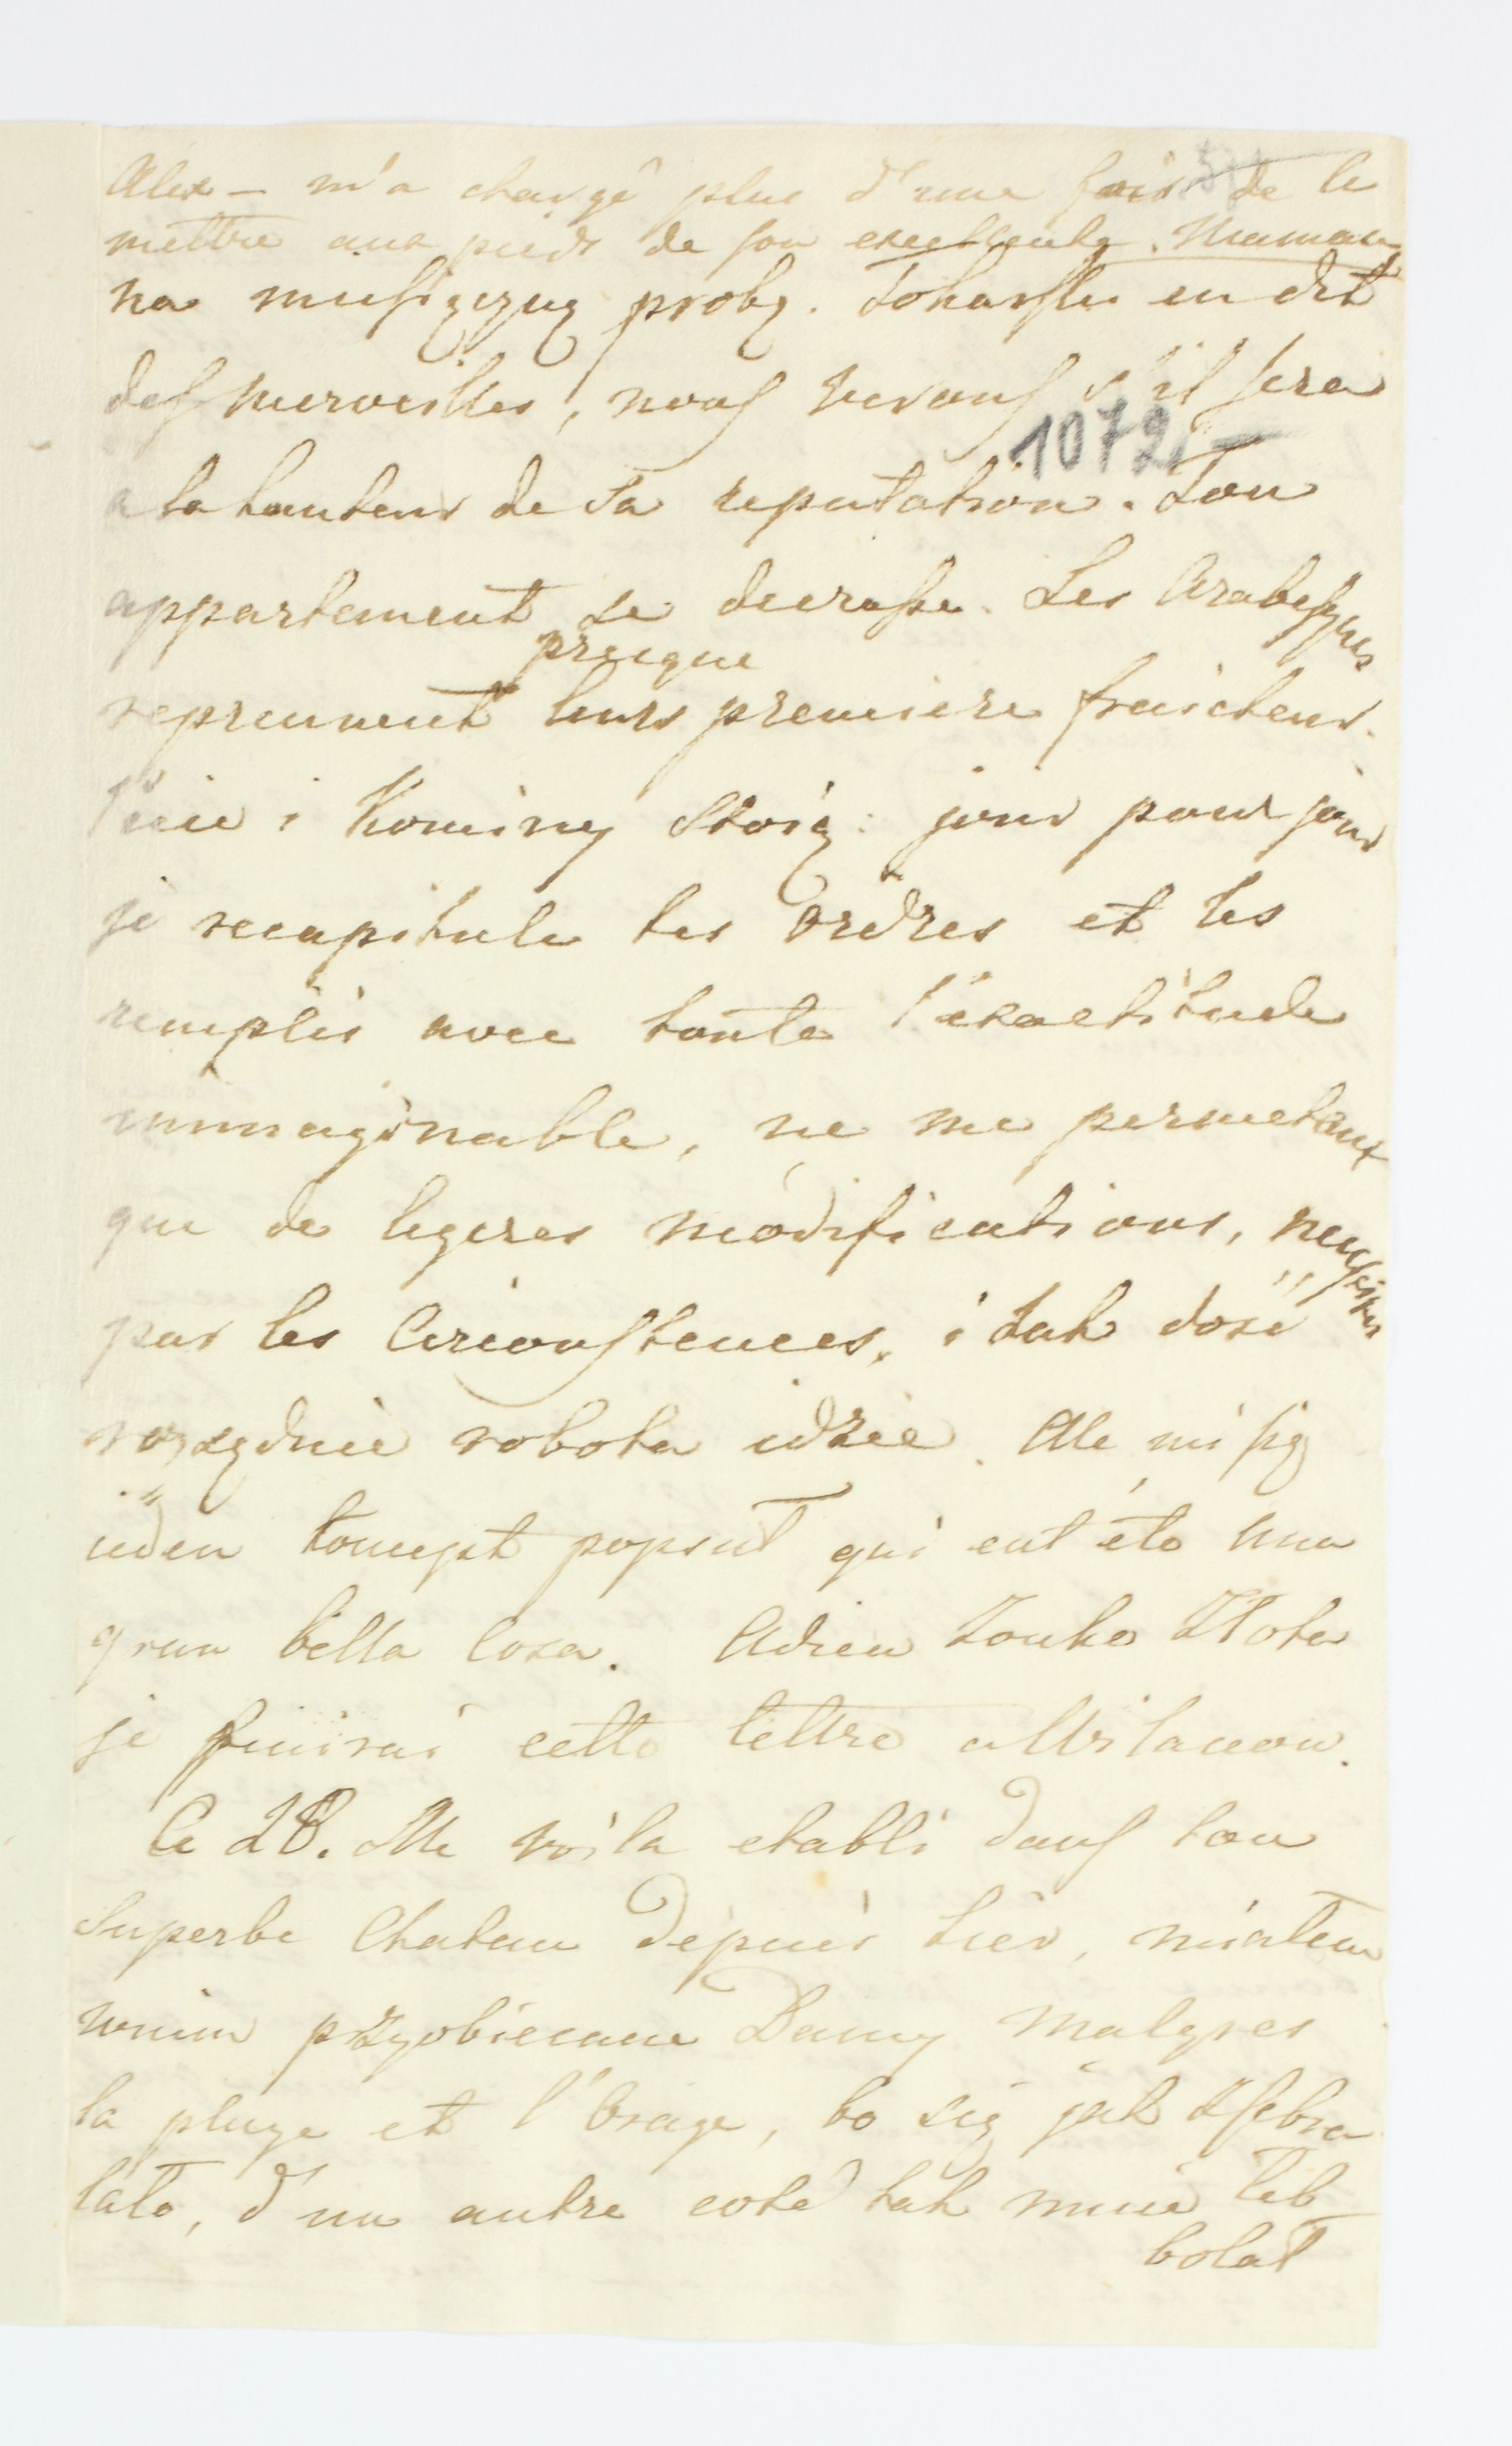 Alex – m'a chargé plus d'une fois de le
mettre aux pieds de son excellente Maman
na miesięczną probę. Tokarski en dit
des merveilles, nous verons s'il sera
1072
a la hauteur de sa reputation. Ton
appartement se decrasse. Les Arabesques
presque
reprennent leurs premiere fraicheur.
i Kominy stoią: jour pour jour
je recapitule tes ordres et les
remplis avec toute l'exactitude
immaginable, ne me permetant
que de legeres modifications,
par les Circonstences, i tak dosic
porządnie robota idzie. Ale mi się
ieden koncept popsuł qui eut été una
gran bella Cosa. Adieu Zonko Złota
je finirai cette lettre a Wilanow.
Ce 28. Me voila etabli dans ton
Superbe Chateau depuis hier, miałem
wnim przyobiecane Damy malgres
la pluye et l'orage, bo się jak zebra
lato, d'un autre coté tak mnie łeb
bolał